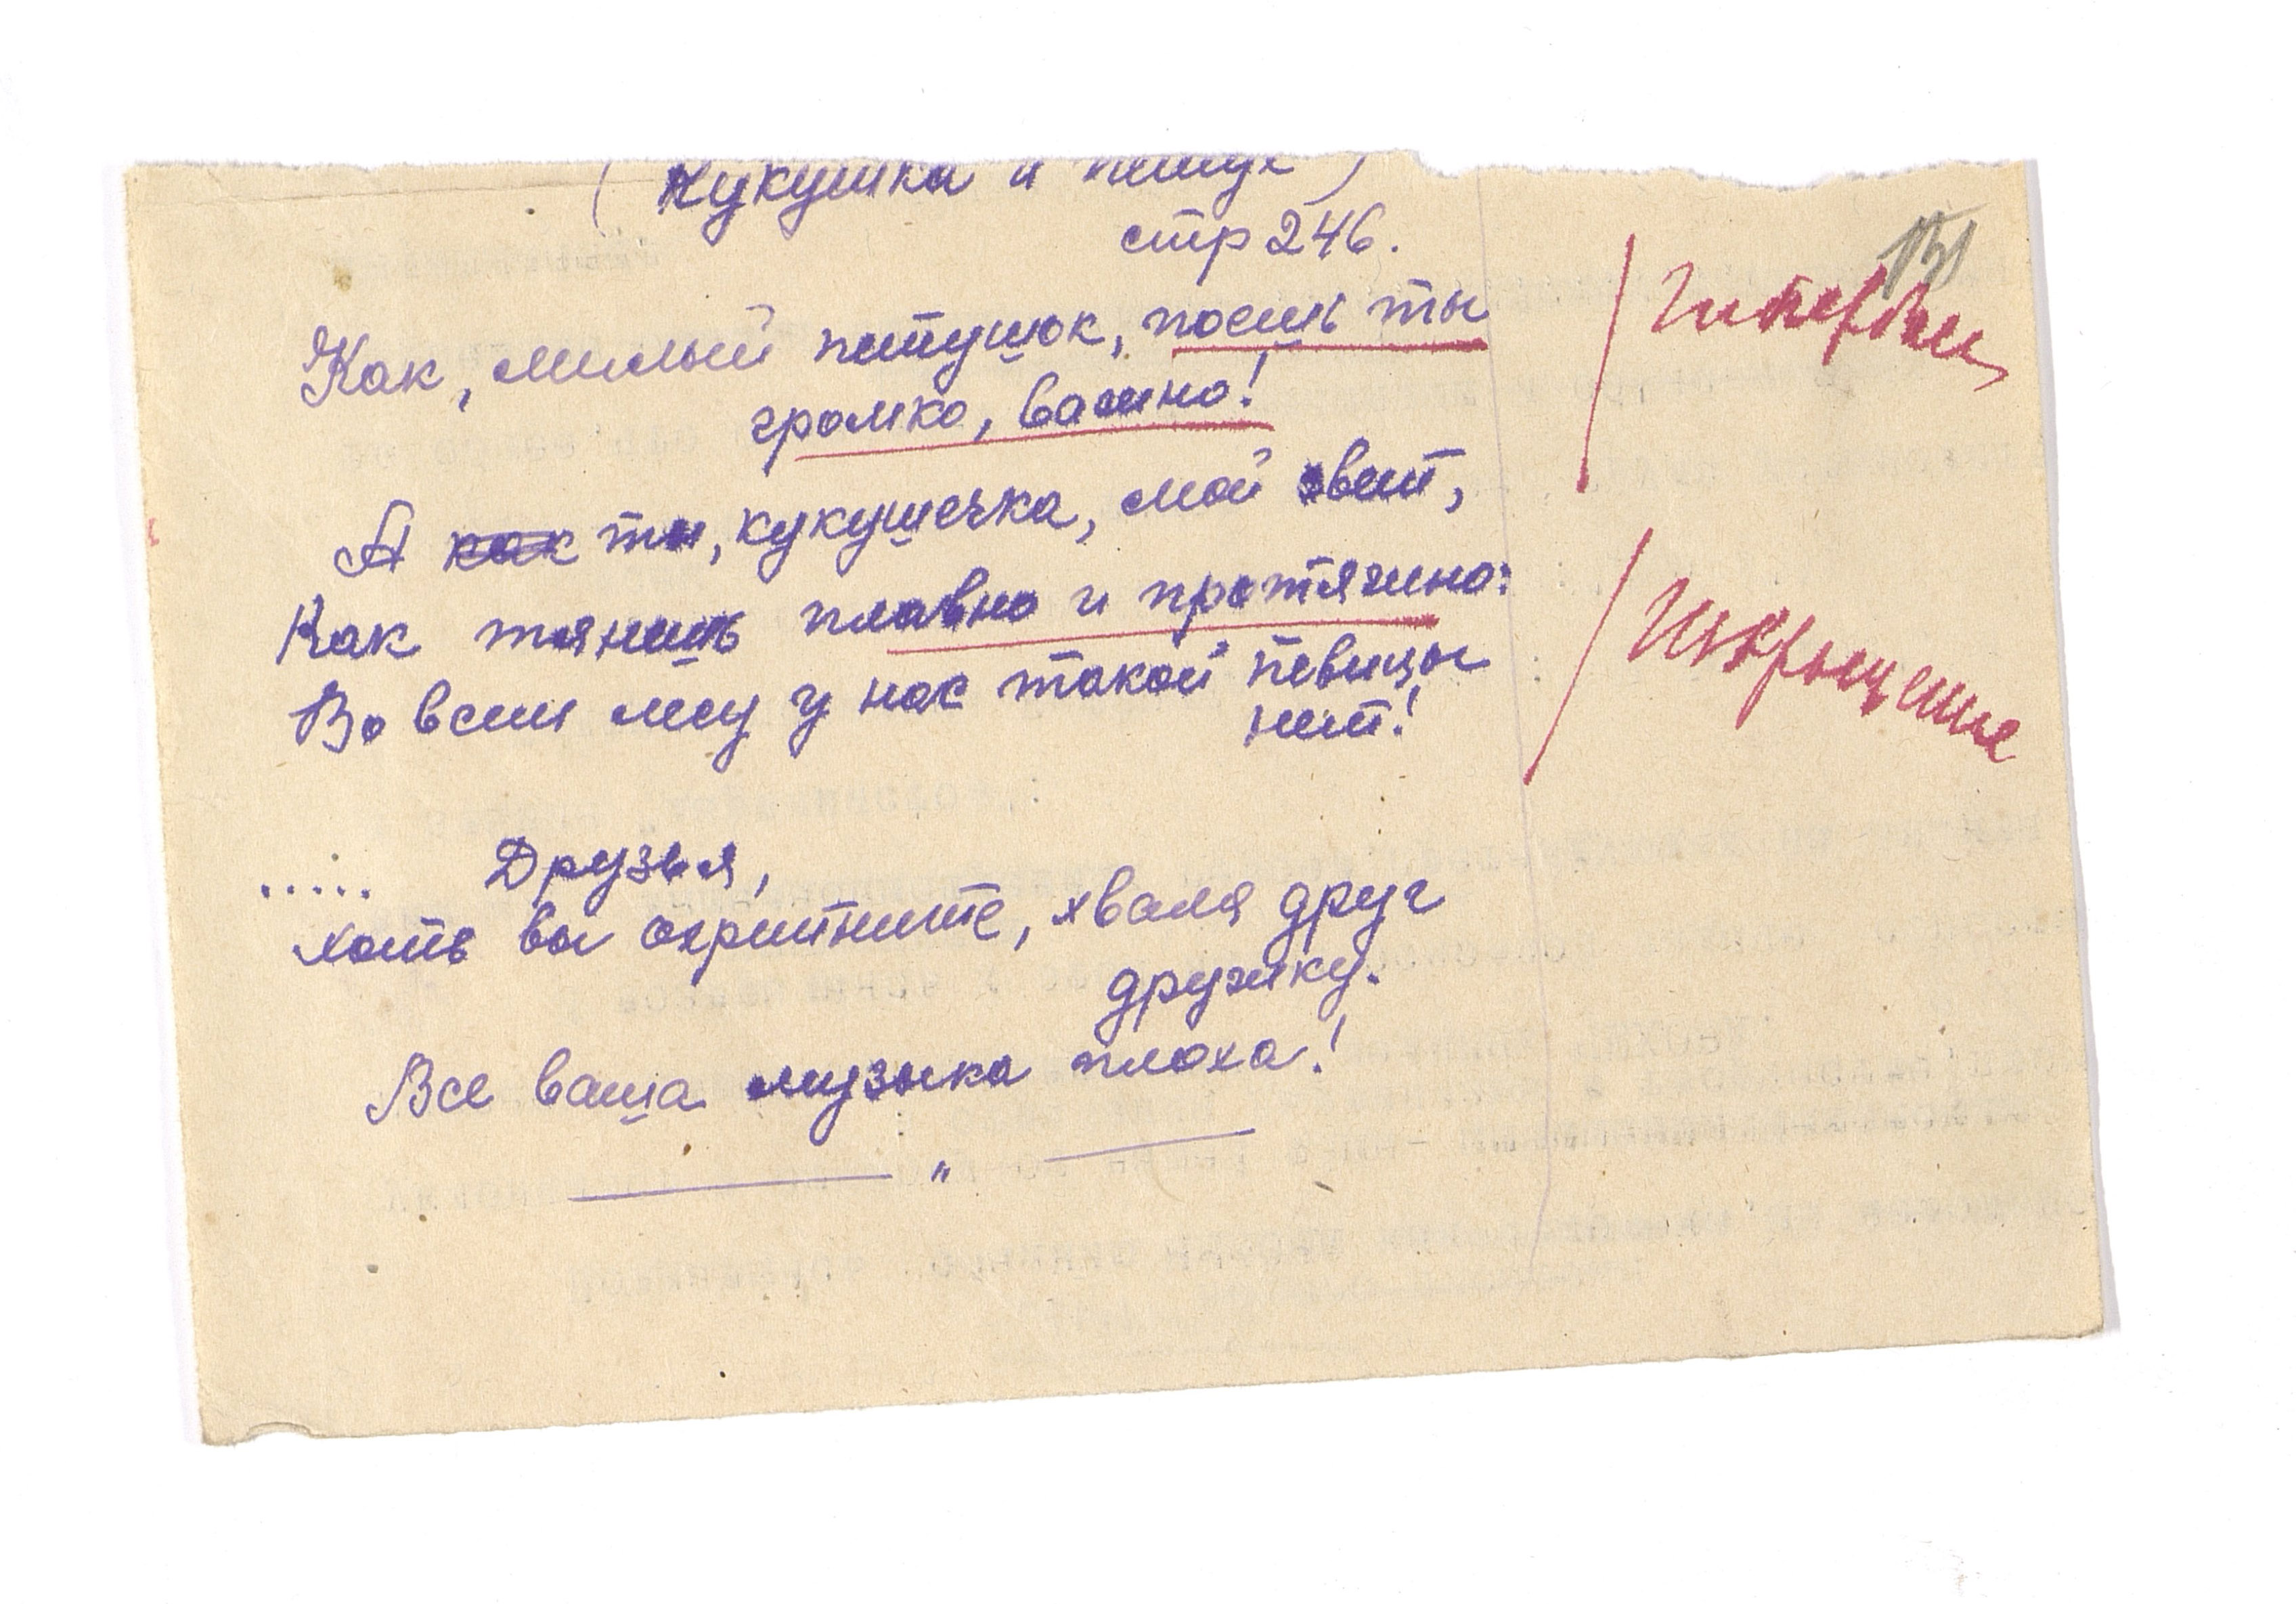 (Кукушка и петух)
стр 246.
Как, милый петушок, поешь ты
громко, важно!
А как ты, кукушечка, мой свет,
Как тянешь плавно и протяжно:
Во всем лесу у нас такой певицы
нет!
..... Друзья,
хоть вы охрипните, хваля друг
дружку.
Все ваша музыка плоха!
— " —